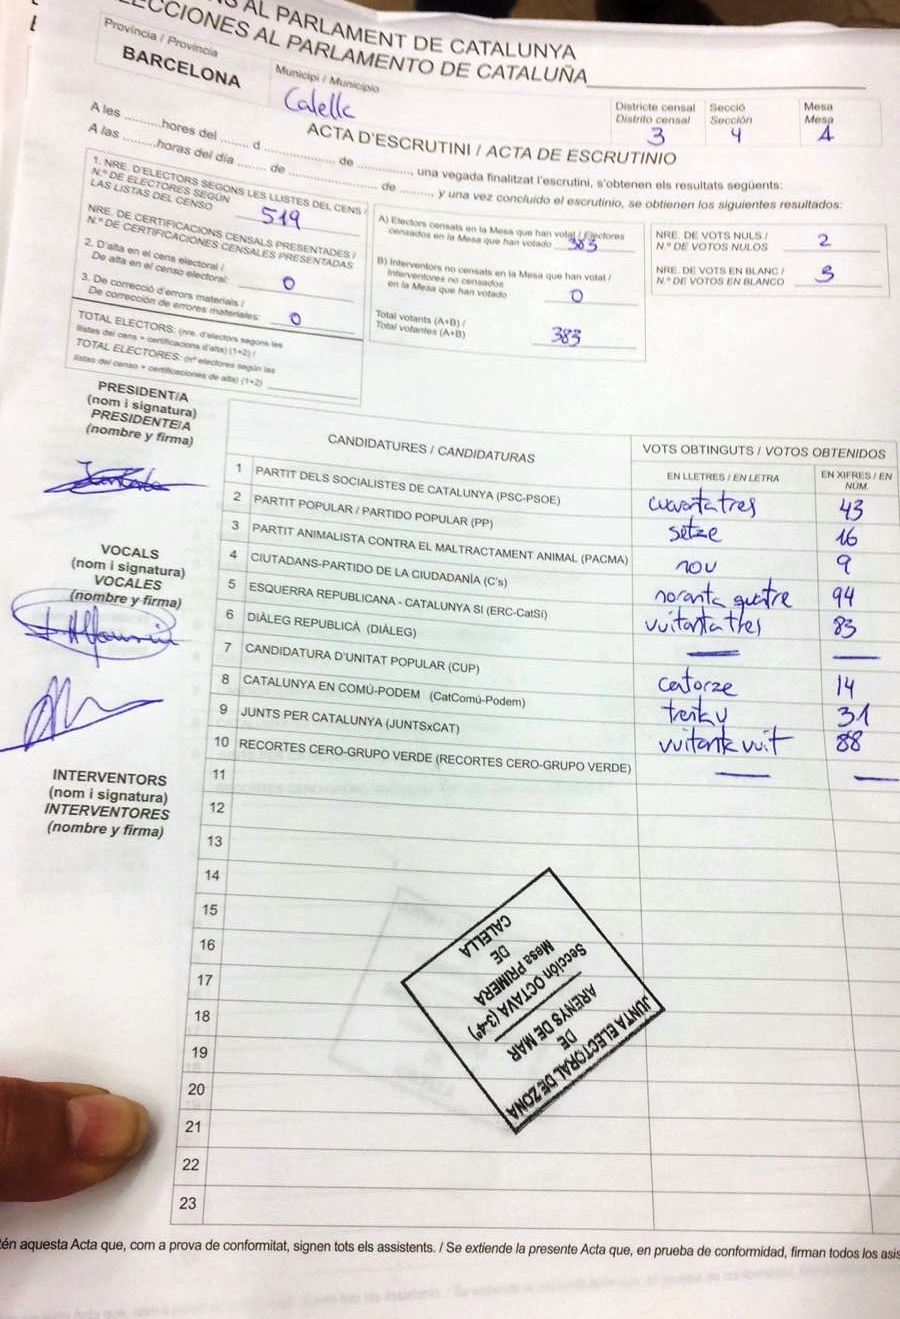 AL PARLAMENT DE CATALUNYA
ECCIONES AL PARLAMENTO DE CATALUÑA
Província / Provincia
BARCELONA
Municipi / Municipio
Calella
Districte censal
Distrito censal
3
Secció
Sección
4
Mesa
Mesa
A
ACTA D'ESCRUTINI / ACTA DE ESCRUTINIO
A les ..........hores del ........ d .................. de .............., una vegada finalitzat l'escrutini, s'obtenen els resultats següents:
A las ..........horas del día ........ de .................. de ........, y una vez concluido el escrutinio, se obtienen los siguientes resultados:
1. NRE. D'ELECTORS SEGONS LES LLISTES DEL CENS /
N.º DE ELECTORES SEGÚN
LAS LISTAS DEL CENSO
519
NRE. DE CERTIFICACIONS CENSALS PRESENTADES /
N.º DE CERTIFICACIONES CENSALES PRESENTADAS
2. D'alta en el cens electoral /
De alta en el censo electoral:
0
3. De correcció d'errors materials /
De corrección de errores materiales:
0
TOTAL ELECTORS: (nre. d'electors segons les
llistes del cens + certificacions d'alta) (1+2) /
TOTAL ELECTORES: (nº electores según las
listas del censo + certificaciones de alta) (1+2)
A) Electors censats en la Mesa que han votat / Electores
censados en la Mesa que han votado 383
B) Interventors no censats en la Mesa que han votat /
Interventores no censados
en la Mesa que han votado
0
Total votants (A+B) /
Total votantes (A+B)
383
NRE. DE VOTS NULS /
N.º DE VOTOS NULOS
2
NRE. DE VOTS EN BLANC /
N.º DE VOTOS EN BLANCO
3
PRESIDENT/A
(nom i signatura)
PRESIDENTE/A
(nombre y firma)
VOCALS
(nom i signatura)
VOCALES
(nombre y firma)
INTERVENTORS
(nom i signatura)
INTERVENTORES
(nombre y firma)
CANDIDATURES / CANDIDATURAS
VOTS OBTINGUTS / VOTOS OBTENIDOS
EN LLETRES / EN LETRA
EN XIFRES / EN
NÚM.
1 PARTIT DELS SOCIALISTES DE CATALUNYA (PSC-PSOE) cuarantatres 43
2 PARTIT POPULAR / PARTIDO POPULAR (PP) setze 16
3 PARTIT ANIMALISTA CONTRA EL MALTRACTAMENT ANIMAL (PACMA) nou 9
4 CIUTADANS-PARTIDO DE LA CIUDADANÍA (C's) noranta quatre 94
5 ESQUERRA REPUBLICANA - CATALUNYA SI (ERC-CatSí) vuitanta tres 83
6 DIÀLEG REPUBLICÀ (DIÀLEG)
7 CANDIDATURA D'UNITAT POPULAR (CUP) catorze 14
8 CATALUNYA EN COMÚ-PODEM (CatComú-Podem) 31
9 JUNTS PER CATALUNYA (JUNTSxCAT) vuitanta vuit 88
10 RECORTES CERO-GRUPO VERDE (RECORTES CERO-GRUPO VERDE)
11
12
13
14
15
16
17
18
19
20
21
22
23
JUNTA ELECTORAL DE ZONA
DE
ARENYS DE MAR
Sección OCTAVA (3-4ª)
Mesa PRIMERA
DE
CALELLA
tén aquesta Acta que, com a prova de conformitat, signen tots els assistents. / Se extiende la presente Acta que, en prueba de conformidad, firman todos los asis